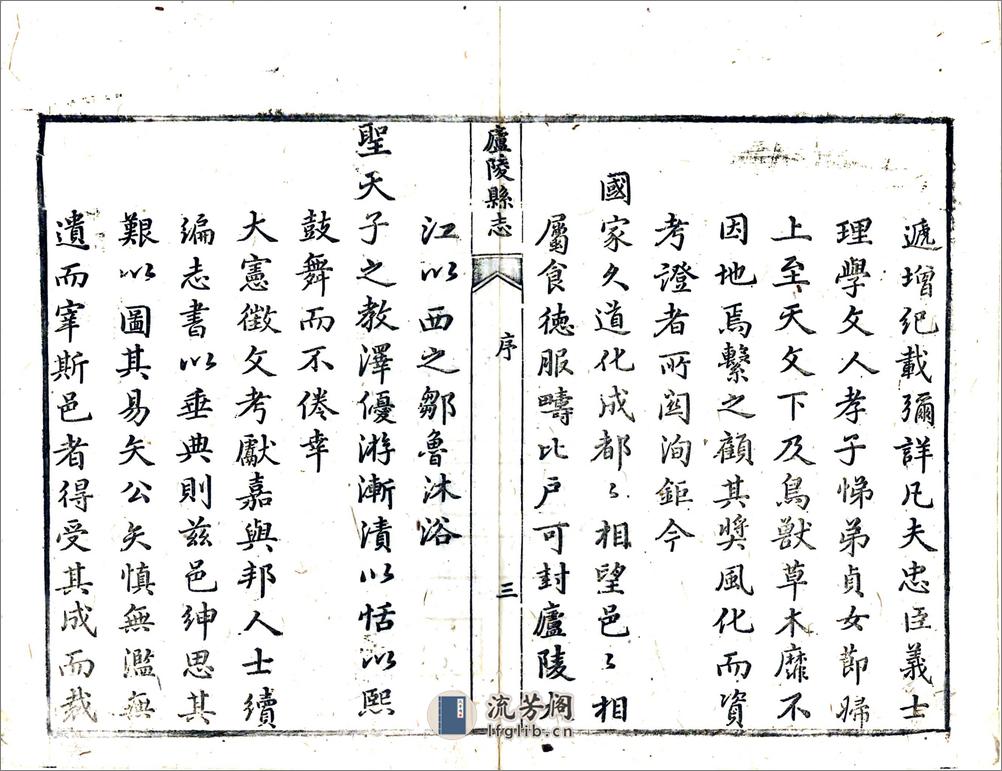 遞增紀載彌詳凡夫忠臣義士
理學文人孝子悌弟貞女節婦
上至天文下及鳥獸草木靡不
因地焉繫之顧其奬風化而資
考證者所関洵鉅今
國家久道化成都〻相望邑〻相
屬食徳服疇比户可封廬陵
廬陵縣志
序
三
江以西之鄒魯沐浴
聖天子之教澤優游漸漬以恬以熙
鼓舞而不倦幸
大憲徵文考獻嘉與邦人士續
編志書以垂典則兹邑紳思其
艱以圖其易矢公矢慎無濫無
遺而宰斯邑者得受其成而裁
流芳阁
lfglib.cn